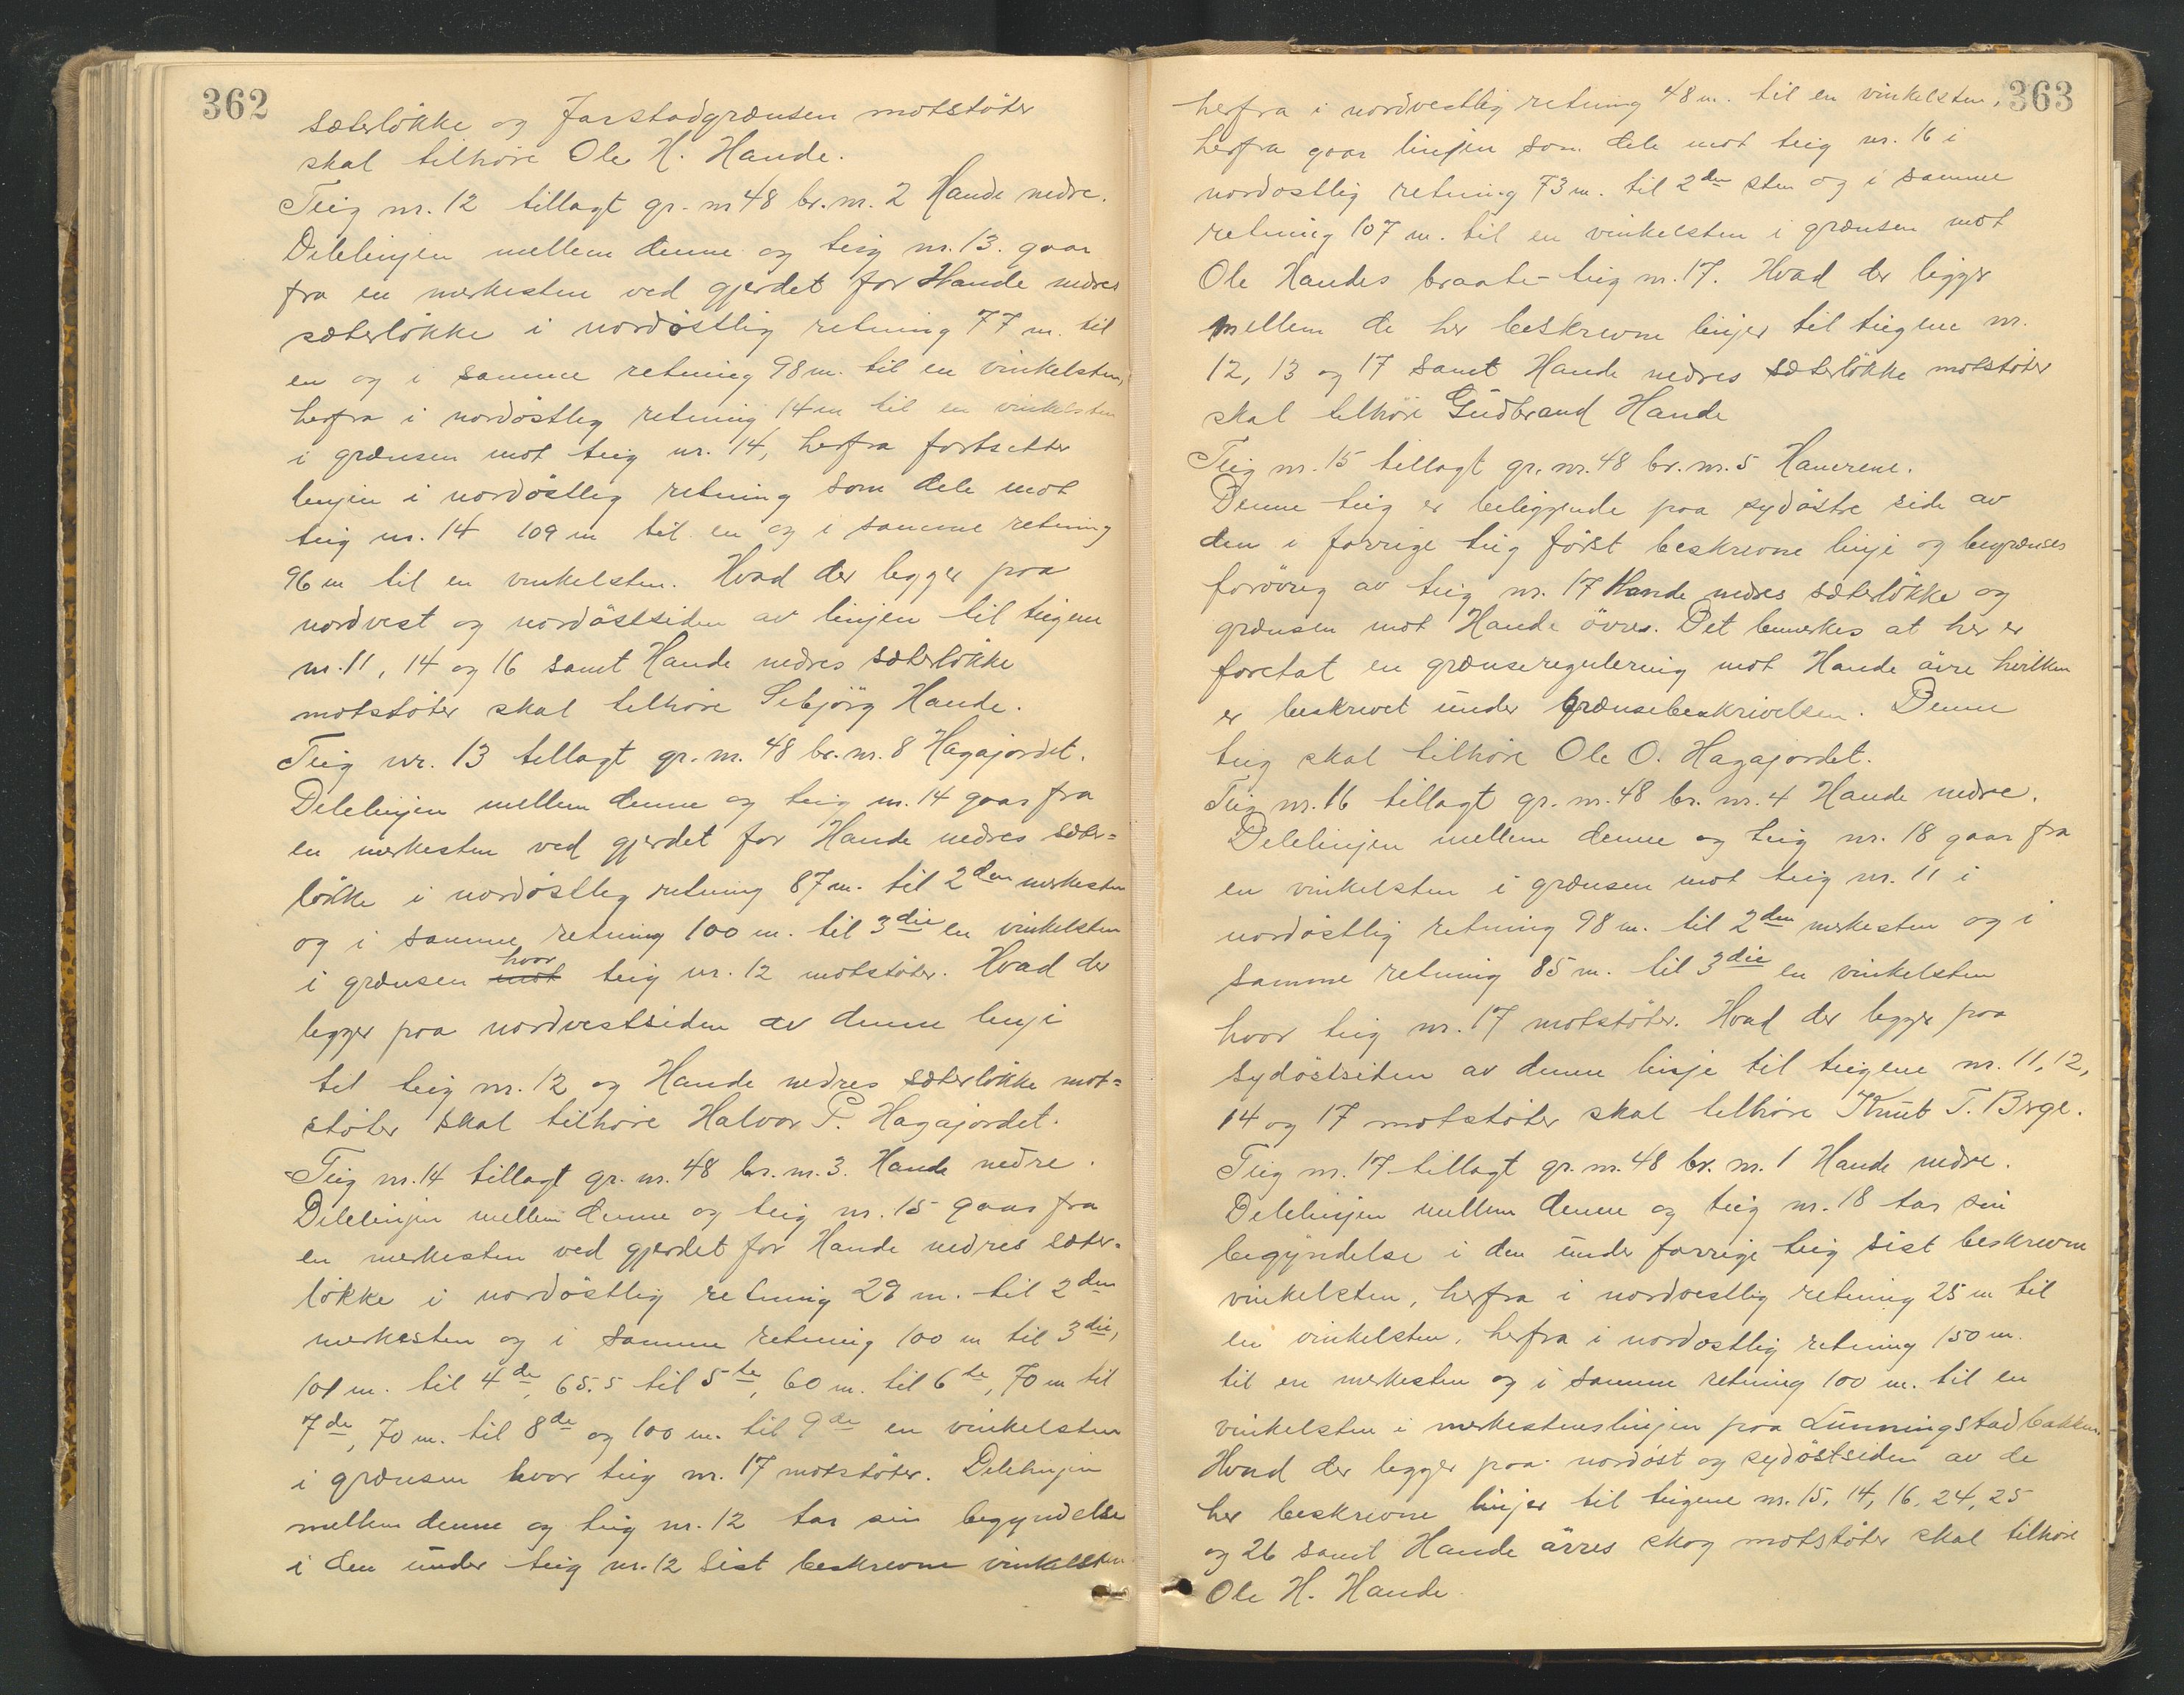 362
sæterlökke og Jarstadgrænsen motstöter
skal tilhöre Ole H. Hande.
Teig nr. 12 tillagt gr. nr 48 br. nr. 2 Hande nedre.
Delelinjen mellem denne og teig nr. 13. gaar
fra en merkesten ved gjerdet for Hande nedres
sæterlökke i nordöstlig retning 77 m. til
en og i samme retning 98 m. til en vinkelsten,
herfra i nordöstleg retning 14 m til en vinkelsten
i grænsen mot teig nr. 14, herfra fortsetter
linjen i nordöstleg retning som dele mot
teig nr. 14 109 m til en og i samme retning
96 m til en vinkelsten. Hvad der legger paa
nordvest og nordöstsiden av linjen til teigene
nr. 11, 14 og 16 samt Hande nedres sæterlökke
motstöter skal tilhöre Sebjörg Hande.
Teig nr. 13 tillagt gr. nr. 48 br. nr. 8 Hagajordet.
Delelinjen mellem denne og teig nr. 14 gaar fra
en merkesten ved gjerdet for Hande nedres sæter=
lökke i nordöstleg retning 87 m. til 2den merkesten
og i samme retning 100 m. til 3die en vinkelsten
i grænsen mot hvor teig nr. 12 motstöter. Hvad der
legger paa nordvestsiden av denne linje
til teig nr. 12 og Hande nedres sæterlökke mot=
stöter skal tilhöre Halvor P. Hagajordet.
Teig nr. 14 tillagt gr. nr. 48 br. nr. 3. Hande nedre.
Delelinjen mellem denne og teig nr. 15 gaar fra
en merkesten ved gjerdet for Hande nedres sæter=
lökke i nordöstlig retning 29 m. til 2den
merkesten og i samme retning 100 m til 3die,
101 m. til 4de, 65.5 til 5te, 60 m. til 6te, 70 m til
7de, 70 m. til 8de og 100 m. til 9de en vinkelsten
i grænsen hvor teig nr. 17 motstöter. Delelinjen
mellem denne og teig nr. 12 tar sin begyndelse
i den under teig nr. 12 sist beskrevne vinkelsten
363
herfra i nordvestlig retning 48 m. til en vinkelsten,
herfra gaar linjen som dele mot teig nr. 16 i
nordostlig retning 73 m. til 2den sten og i samme
retning 107 m. til en vinkelsten i grænsen mot
Ole Handes braate- teig nr. 17. Hvad der ligger
mellem de her beskrevne linjer til teigene nr.
12, 13 og 17 samt Hande nedres sæterlökke motstöter
skal tilhöre Gudbrand Hande
Teig nr. 15 tillagt gr. nr. 48 br. nr. 5 Hanerene.
Denne teig er beliggende paa sydöstre side av
den i forrige teig först beskrevne linje og begrænses
forövrig av teig nr. 17 Hande nedres sæterlökke og
grænsen mot Hande övres. Det bemerkes at her er
foretat en grænseregulering mot Hande övre hvilken
er beskrevet under grænsebeskrivelsen. Denne
teig skal tilhöre Ole O. Hagajordet.
Teig nr. 16 tillagt gr. nr. 48 br. nr. 4 Hande nedre.
Delelinjen mellem denne og teig nr. 18 gaar fra
en vinkelsten i grænsen mot teig nr. 11 i
nordöstlig retning 98 m. til 2den merkesten og i
samme retning 85 m. til 3die en vinkelsten
hvor teig nr. 17 motstöter. Hvad der legger paa
sydöstsiden av denne linje til teigene nr. 11, 12,
14 og 17 motstöter skal tilhöre Knut T. Berge.
Teig nr. 17 tillagt gr. nr. 48 br. nr. 1 Hande nedre.
Delelinjen mellem denne og teig nr. 18 tar sin
begyndelse i den under forrige teig sist beskrevne
vinkelsten, herfra i nordvestlig retning 25 m til
en vinkelsten. herfra i nordostlig retning 150 m.
til en merkesten og i samme retning 100 m. til en
vinkelsten i merkestenslinjen paa Lunningstadbakken.
Hvad der legger paa nordöst og sydöstsiden av de
her beskrevne linjer til teigene nr. 15, 14, 16, 24, 25
og 26 samt Hande övres skog motstöter skal tilhöre
Ole H. Hande.